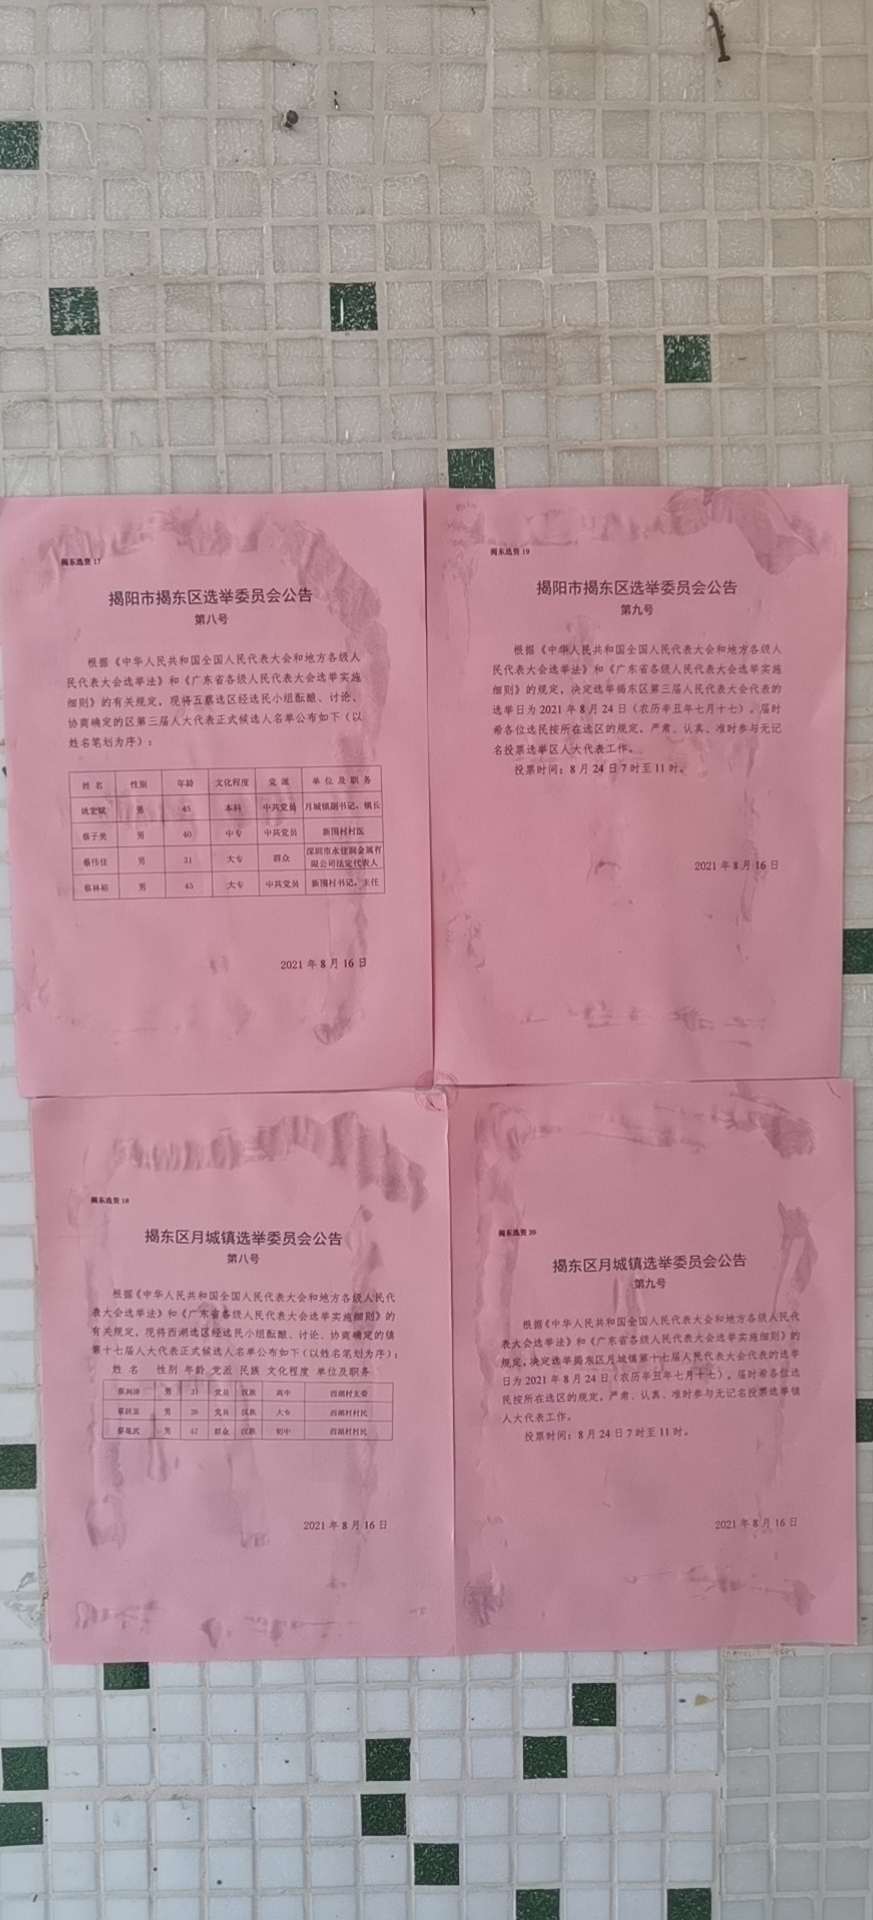 揭东选资 17
揭阳市揭东区选举委员会公告
第八号
根据《中华人民共和国全国人民代表大会和地方各级人
民代表大会选举法》和《广东省各级人民代表大会选举实施
细则》的有关规定，现将五蔡选区经选民小组酝酿、讨论、
协商确定的区第三届人大代表正式候选人名单公布如下（以
姓名笔划为序）：
姓名 性别 年龄 文化程度 党派 单位及职务
姚宏斌 男 45 本科 中共党员 月城镇副书记，镇长
蔡子 男 40 中专 中共党员 新围村村医
蔡伟佳 男 31 大专 群众 深圳市永佳润金属有
限公司法定代表人
蔡林裕 男 45 大专 中共党员 新围村书记，主任
2021 年 8 月 16 日
揭东选资 19
揭阳市揭东区选举委员会公告
第九号
根据《中华人民共和国全国人民代表大会和地方各级人
民代表大会选举法》和《广东省各级人民代表大会选举实施
细则》的规定，决定选举揭东区第三届人民代表大会代表的
选举日为 2021 年 8 月 24 日（农历辛丑年七月十七）。届时
希各位选民按所在选区的规定，严肃、认真、准时参与无记
名投票选举区人大代表工作。
投票时间：8 月 24 日 7 时至 11 时。
2021 年 8 月 16 日
揭东选资 18
揭东区月城镇选举委员会公告
第八号
根据《中华人民共和国全国人民代表大会和地方各级人民代
表大会选举法》和《广东省各级人民代表大会选举实施细则》的
有关规定，现将西湖选区经选民小组酝酿、讨论、协商确定的镇
第十七届人大代表正式候选人名单公布如下（以姓名笔划为序）：
姓名 性别 年龄 党派 民族 文化程度 单位及职务
蔡润泽 男 31 党员 汉族 高中 西湖村支委
蔡 男 26 党员 汉族 大专 西湖村村民
蔡 男 57 群众 汉族 初中 西湖村村民
2021 年 8 月 16 日
揭东选资 20
揭东区月城镇选举委员会公告
第九号
根据《中华人民共和国全国人民代表大会和地方各级人民代
表大会选举法》和《广东省各级人民代表大会选举实施细则》的
规定，决定选举揭东区月城镇第十七届人民代表大会代表的选举
日为 2021 年 8 月 24 日（农历辛丑年七月十七）。届时希各位选
民按所在选区的规定，严肃、认真、准时参与无记名投票选举镇
人大代表工作。
投票时间：8 月 24 日 7 时至 11 时。
2021 年 8 月 16 日